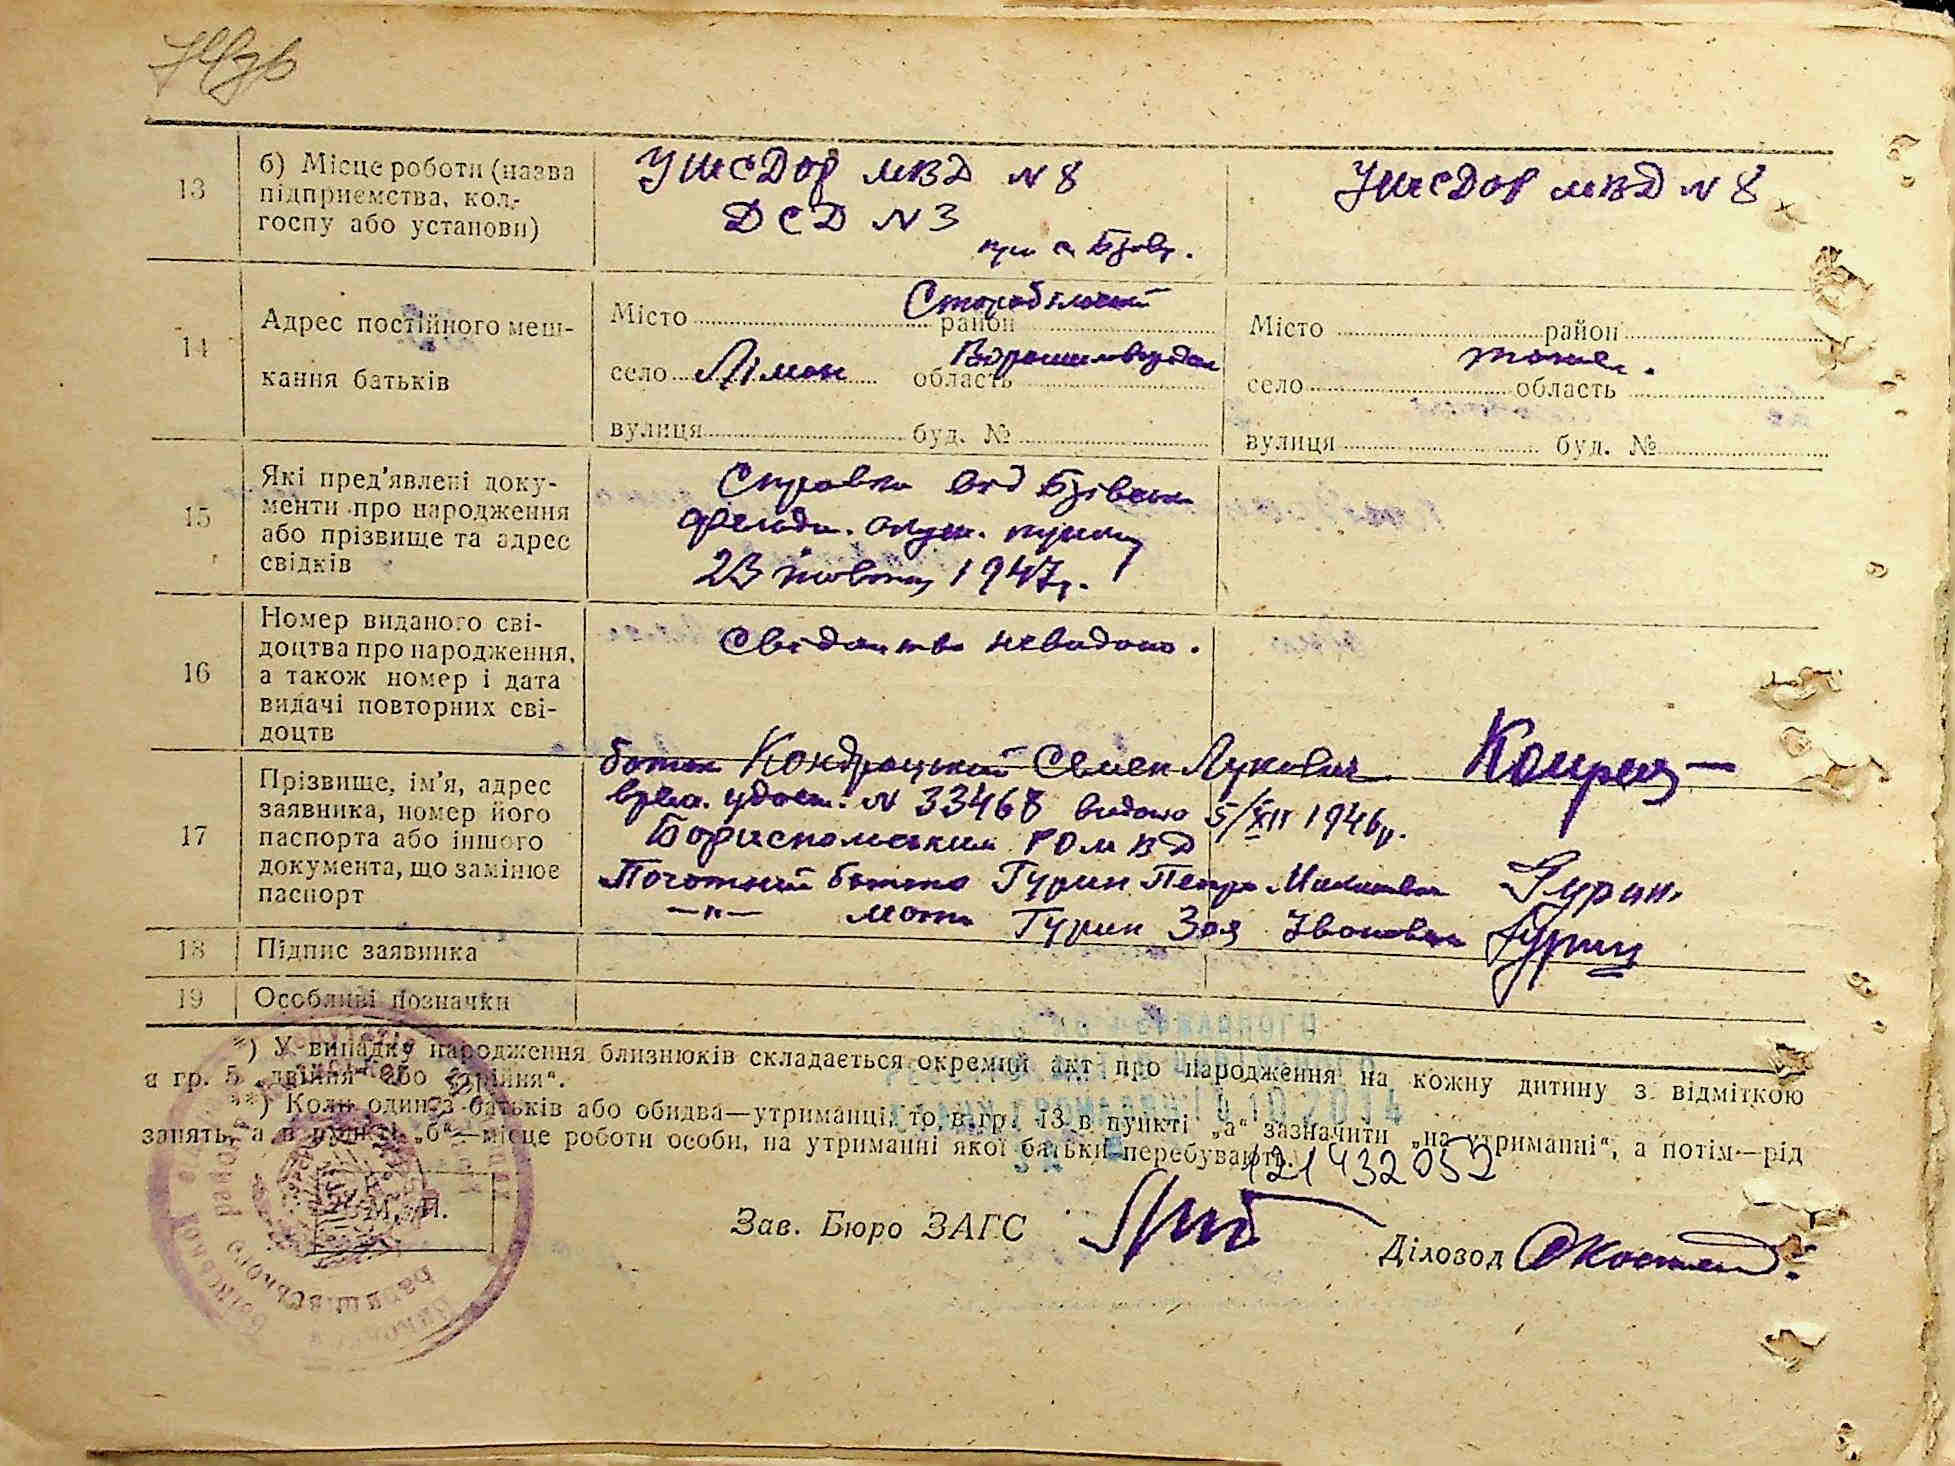 13 б) Місце роботи (назва підприємства, колгоспу або установи)
УШОСДОР МВД N 8
ДСД N 3
при с.
УШОСДОР МВД N 8
14 Адрес постійного мешкання батьків
Місто район Старобільский
село Лімон область Ворошиловградск
вулиця буд. №
Місто район
село область
вулиця буд. №
15 Які пред'явлені документи про народження або прізвище та адрес свідків
Справка від
пункту
23 жовтня 1947р.
16 Номер виданого свідоцтва про народження, а також номер і дата видачі повторних свідоцтв
Свідоцтво невидано.
17 Прізвище, ім'я, адрес заявника, номер його паспорта або іншого документа, що замінює паспорт
батько Кондрацький Семен Лукович
удост. N 33468 видано 5/XII 1946р.
Бориспольським РОМВД
батько Гурин Петро
—"— мати Гурин Зоя Івановна Гурин
18 Підпис заявника
19 Особливі позначки
*) У випадку народження близнюків складається окремий акт про народження на кожну дитину з відміткою
в гр. 5 „двійня“ або „трійня“.
**) Коли один з батьків або обидва—утриманці, то в гр. 13 в пункті „а“ зазначити „на утриманні“, а потім—рід
занять, а в пункті „б“—місце роботи особи, на утриманні якої батьки перебувають.
121432052
М. П.
Зав. Бюро ЗАГС
Діловод